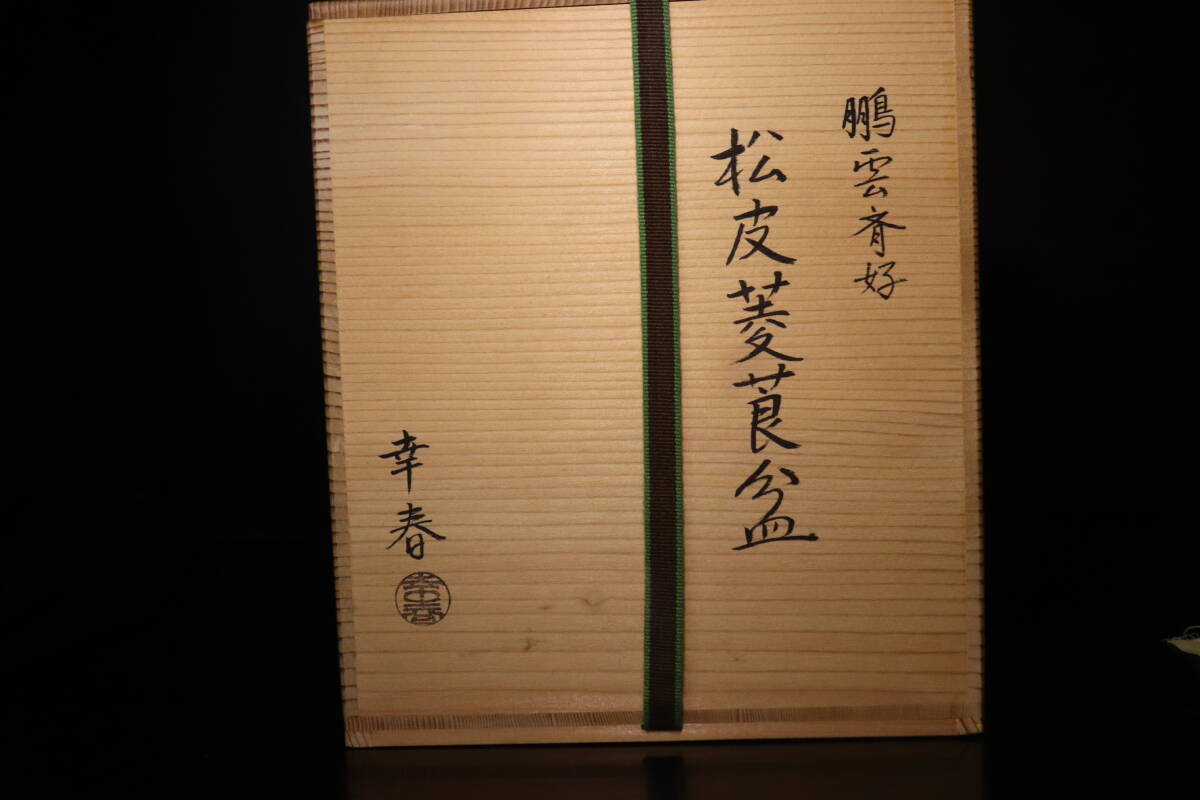 鵬雲斉好
松皮菱莨盆
幸春
幸春